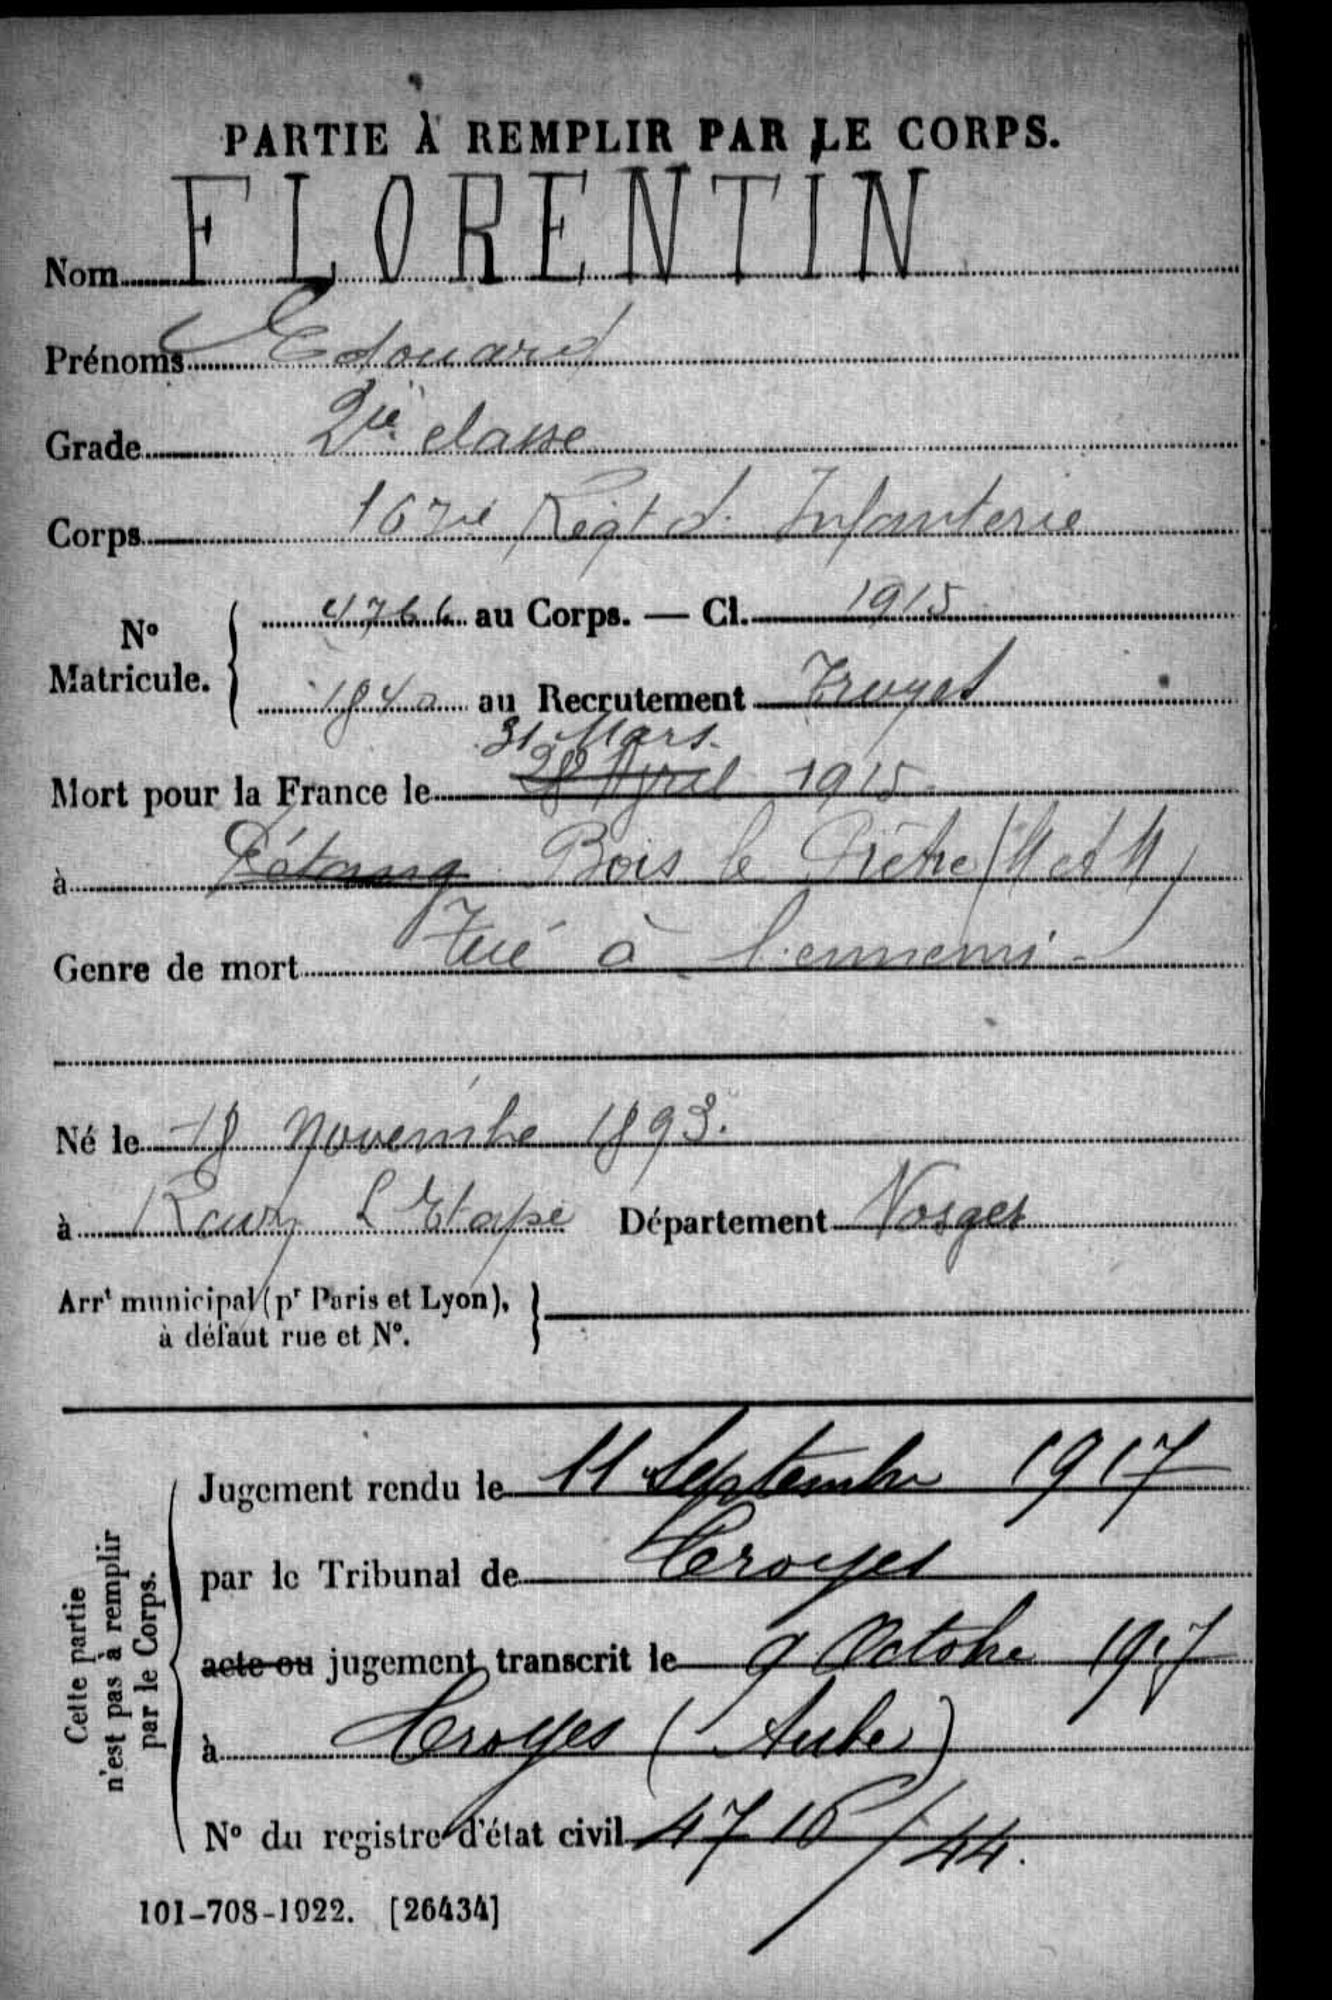 PARTIE À REMPLIR PAR LE CORPS.
Nom FLORENTIN
Prénoms Edouard
Grade 2ie classe
Corps 167ie Regt d. Infanterie
N° Matricule. { 4766 au Corps. — Cl. 1915
1840 au Recrutement Troyes
31 Mars.
Mort pour la France le 28 Avril 1915
à L'étang Bois le Prêtre (M et M)
Genre de mort Tué à l'ennemi -
Né le 18 Novembre 1893.
à Raon L'Etape Département Vosges
Arrt municipal (pr Paris et Lyon), à défaut rue et N°. }
Cette partie n'est pas à remplir par le Corps.
Jugement rendu le 11 Septembre 1917
par le Tribunal de Troyes
acte ou jugement transcrit le 9 Octobre 1917
à Troyes (Aube)
N° du registre d'état civil 4716/44.
101-708-1922. [26434]